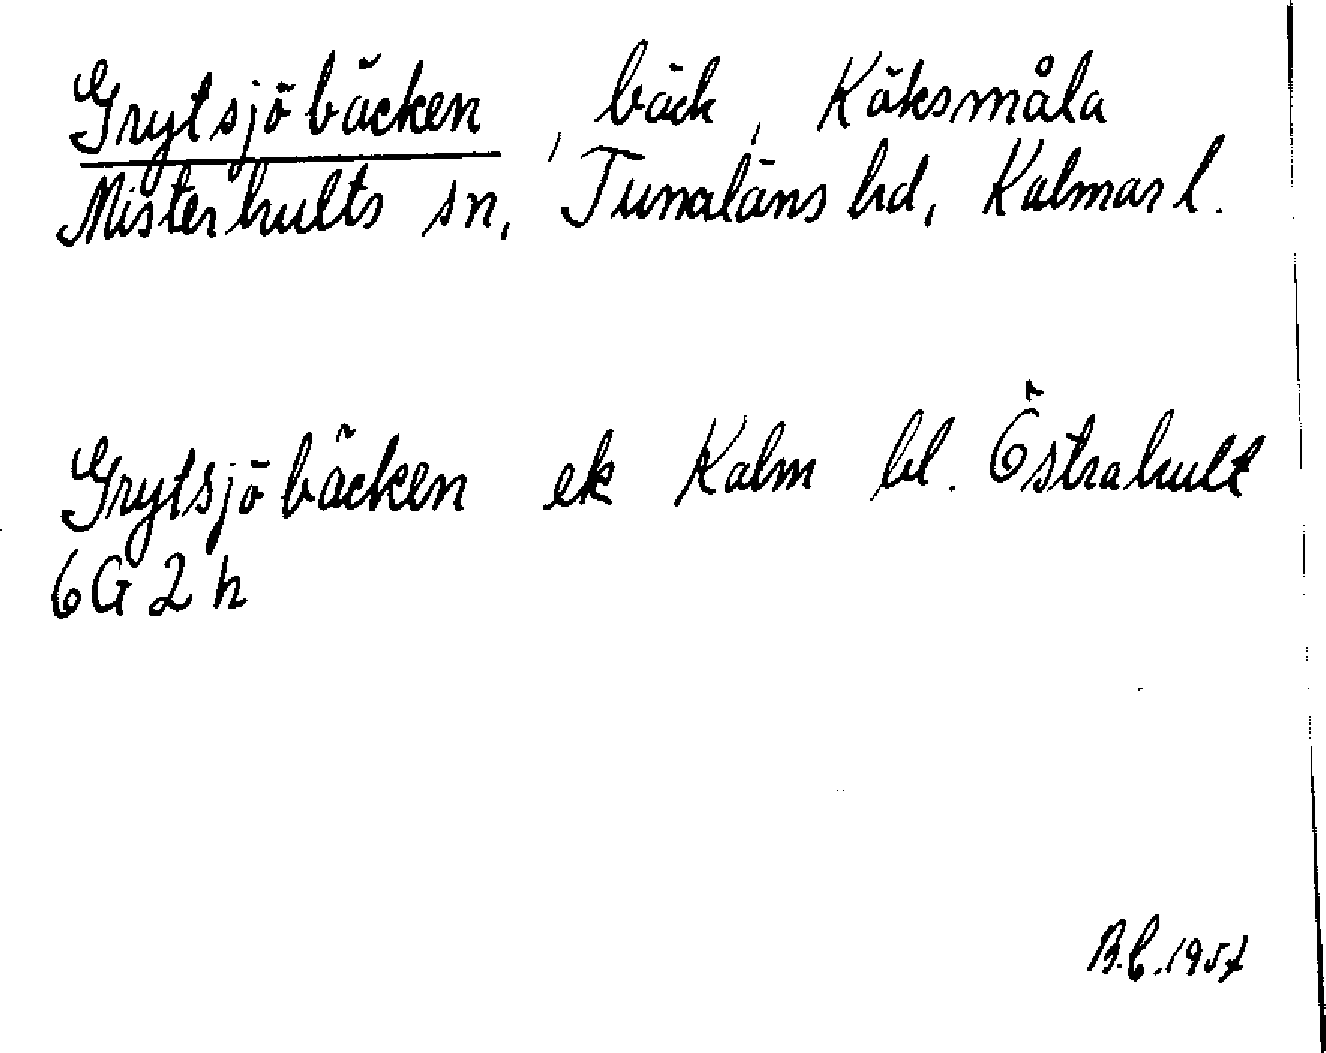 Grytsjöbäcken, bäck, Käksmåla
Misterhults sn, Tunaläns hd, Kalmar l.
Grytsjöbäcken ek Kalm bl. Östrahult
6G 2h
B.C. 1957